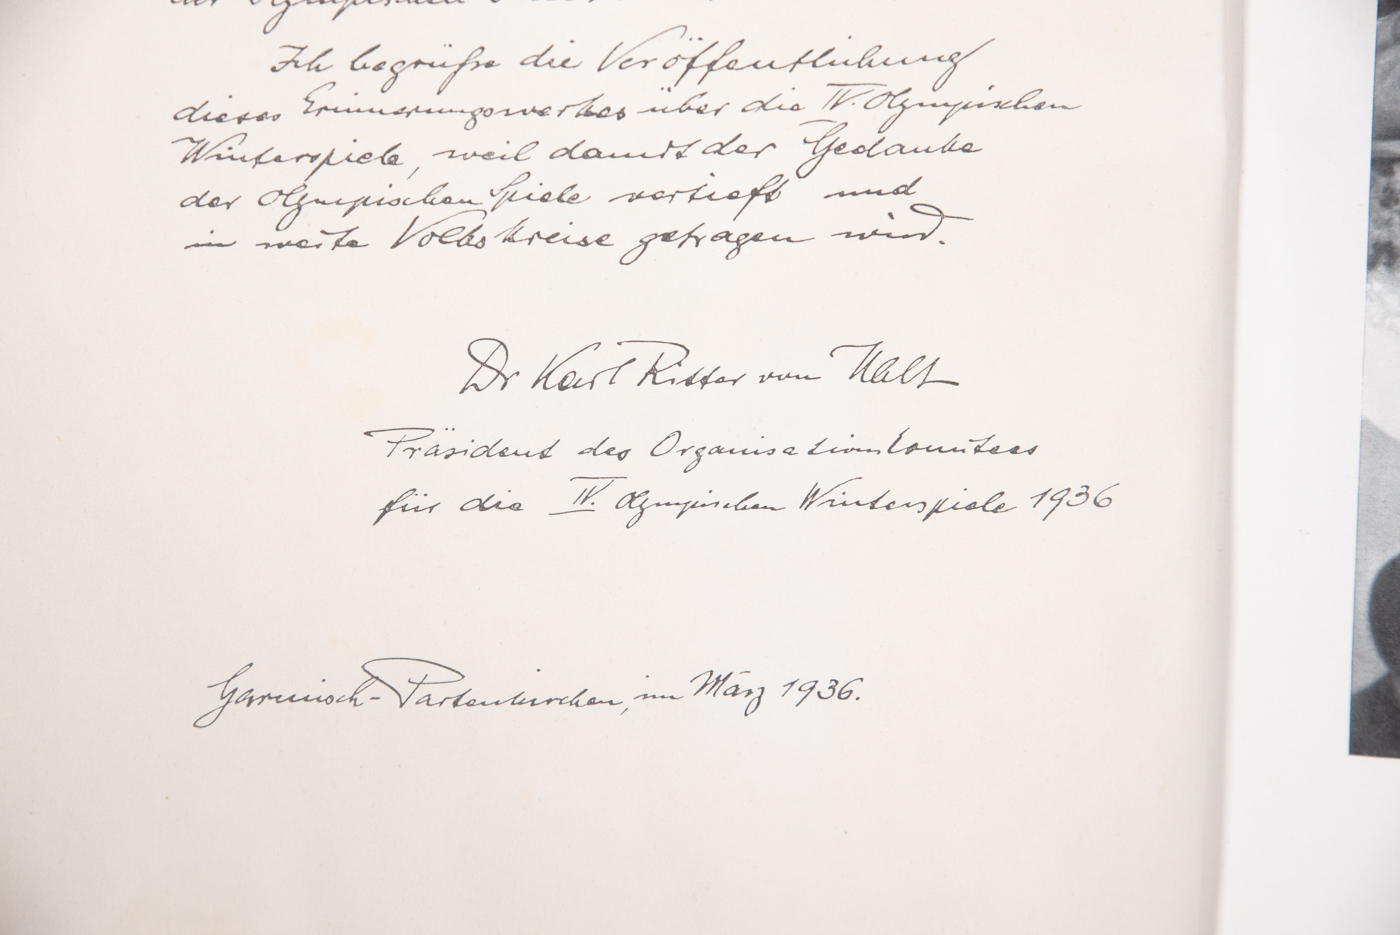 der Olympischen
Ich begrüße die Veröffentlichung
dieses Erinnerungswerkes über die IV. Olympischen
Winterspiele, weil damit der Gedanke
der Olympischen Spiele vertieft und
in weite Volkskreise getragen wird.
Dr Karl Ritter von Halt
Präsident des Organisationskomitees
für die IV. Olympischen Winterspiele 1936
Garmisch-Partenkirchen, im März 1936.